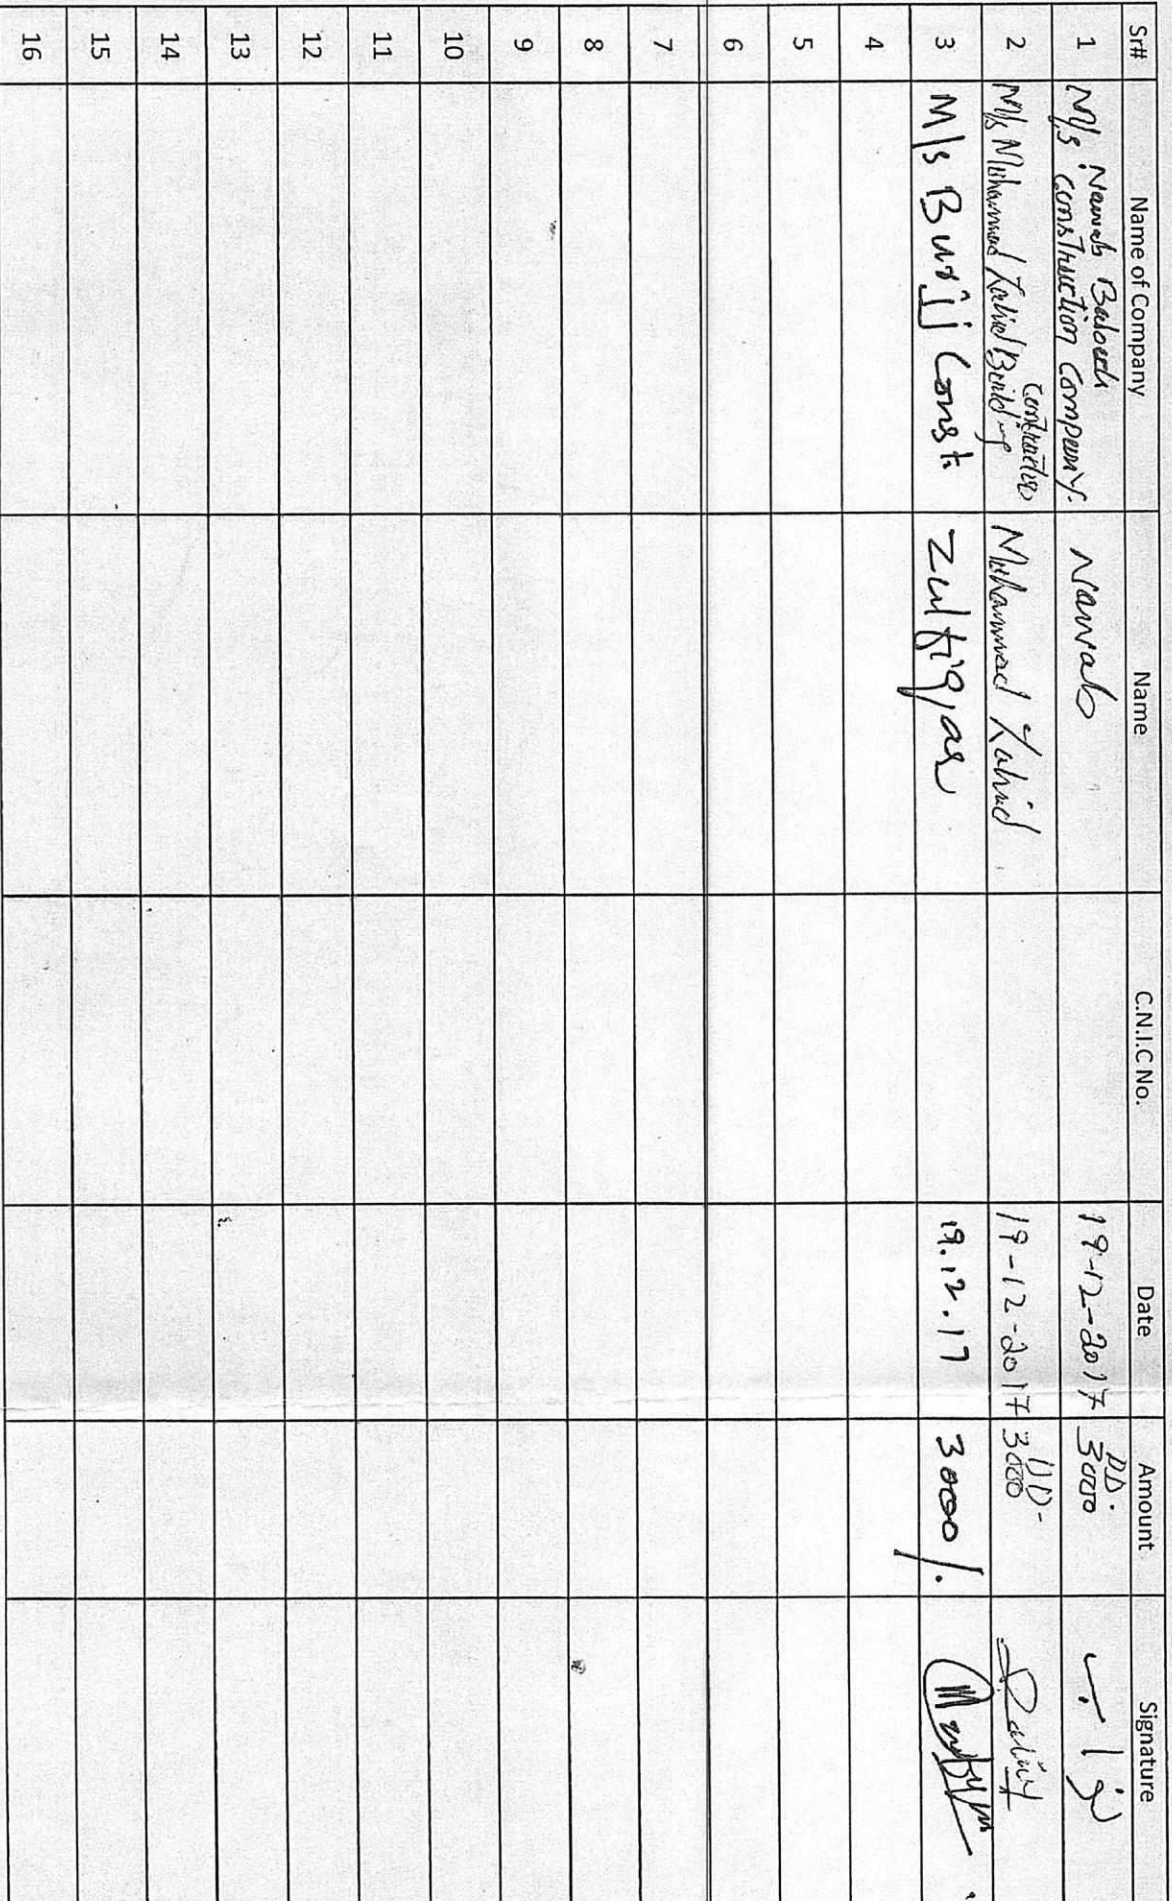 Sr# Name of Company Name C.N.I.C No. Date Amount Signature
1 M/s Nawab Baloch construction Company. Nawab 19-12-2017 D.D. 3000 نواب
2 M/s Muhammad Zahid Building Contractor Muhammad Zahid 19-12-2017 DD- 3000 Zahid
3 M/s Burjj Const. Zulfiqar 19.12.17 3000/.
4
5
6
7
8
9
10
11
12
13
14
15
16